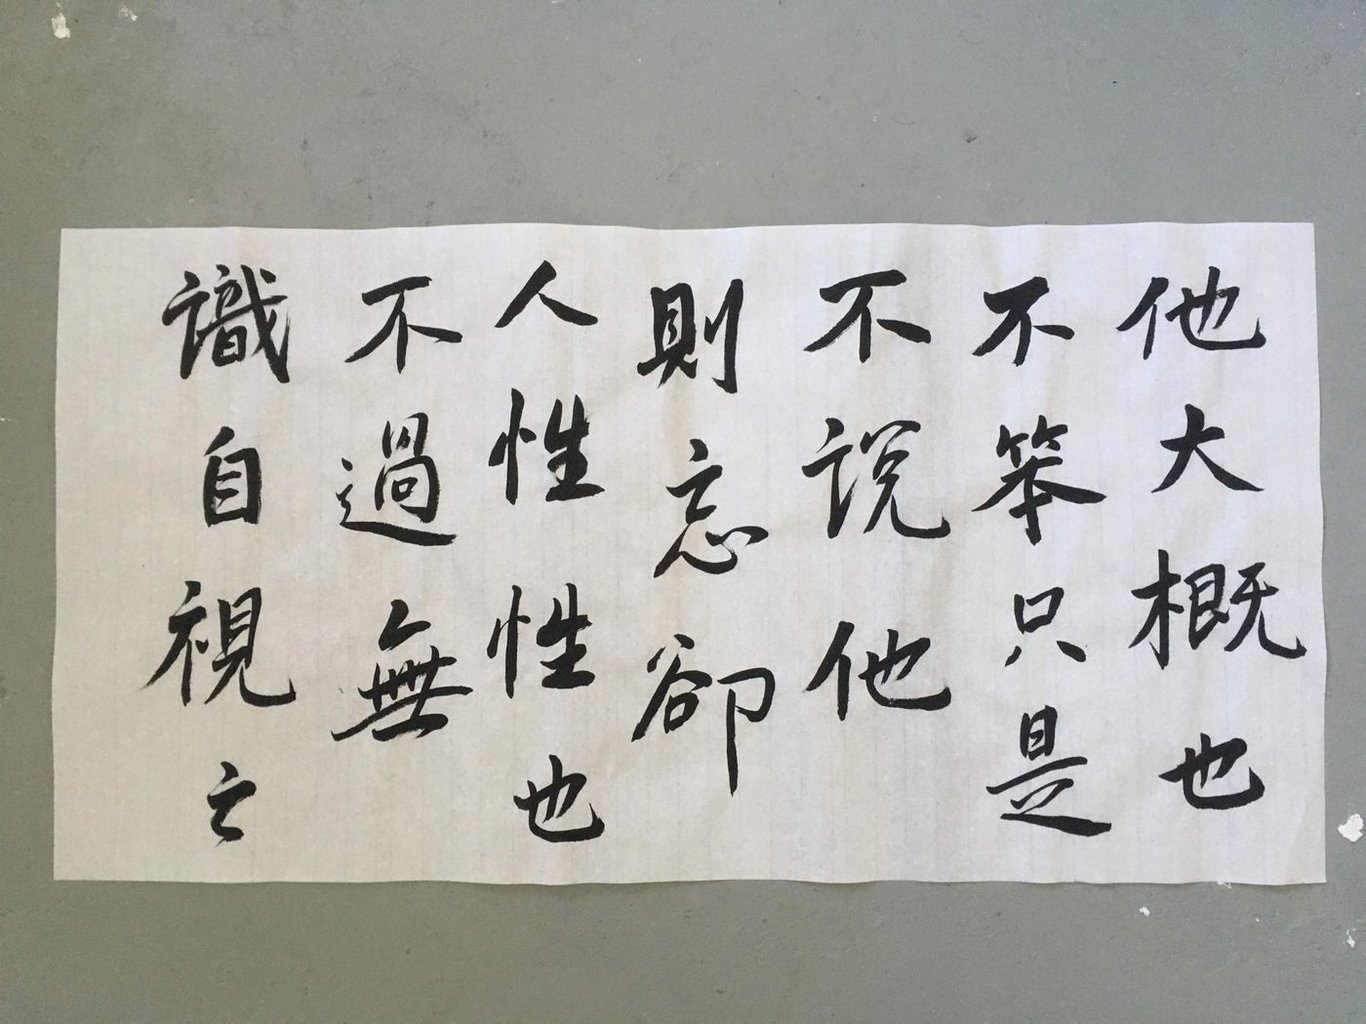 他大概也
不笨只是
不説他
則忘卻
人性性也
不過無
識自視之